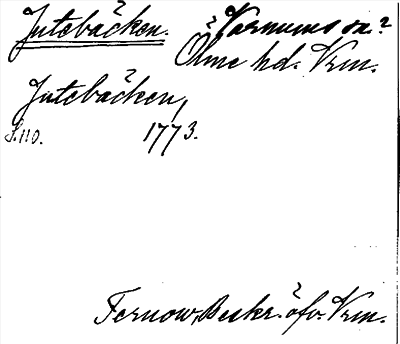 Jutebäcken. Varnums sn?
Ölme hd. Vrm.
Jutebäcken,
S. 110. 1773.
Fernow, Beskr. öfv. Vrm.